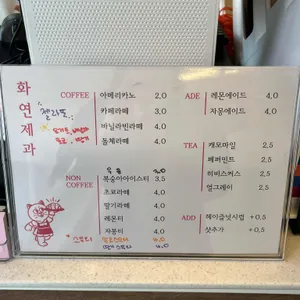 화연제과
COFFEE
아메리카노 2,0
카페라떼 3,0
바닐라빈라떼 4,0
돌체라떼 4,0
ADE
레몬에이드 4,0
자몽에이드 4,0
TEA
캐모마일 2,5
페퍼민트 2,5
히비스커스 2,5
얼그레이 2,5
NON COFFEE
우유 2,0
복숭아아이스티 3,5
초코라떼 4,0
딸기라떼 4,0
레몬티 4,0
자몽티 4,0
4,0
4,0
ADD
헤이즐넛시럽 +0,5
샷추가 +0,5